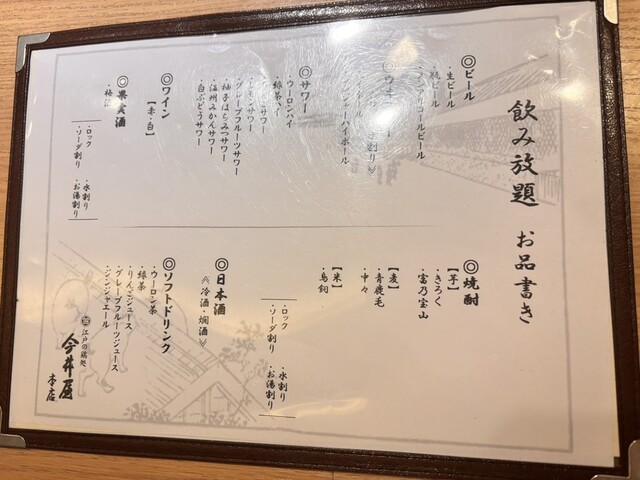 飲み放題 お品書き
◎ビール
・生ビール
・瓶ビール
ルビール
◎ウ
割り》
ハイボール
◎サワー
・ウーロンハイ
・緑茶ハイ
サワー
・グレープフルーツサワー
・柚子はちみつサワー
・温州みかんサワー
・白ぶどうサワー
◎ワイン
【赤・白】
◎果実酒
・梅酒
・ロック
・ソーダ割り
・水割り
・お湯割り
◎焼酎
【芋】
・きろく
・富乃宝山
【麦】
・青鹿毛
・中々
【米】
・鳥飼
・ロック
・ソーダ割り
・水割り
・お湯割り
◎日本酒
《冷酒・燗酒》
◎ソフトドリンク
・ウーロン茶
・緑茶
・りんごジュース
・グレープフルーツジュース
・ジンジャエール
江戸の鶏処
今井屋
本店